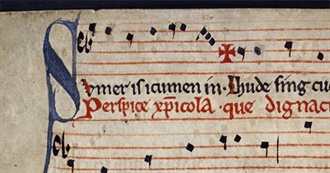 Svmer is icumen in. Lhude sing cu
Perspice xp̅icola. que dignaci